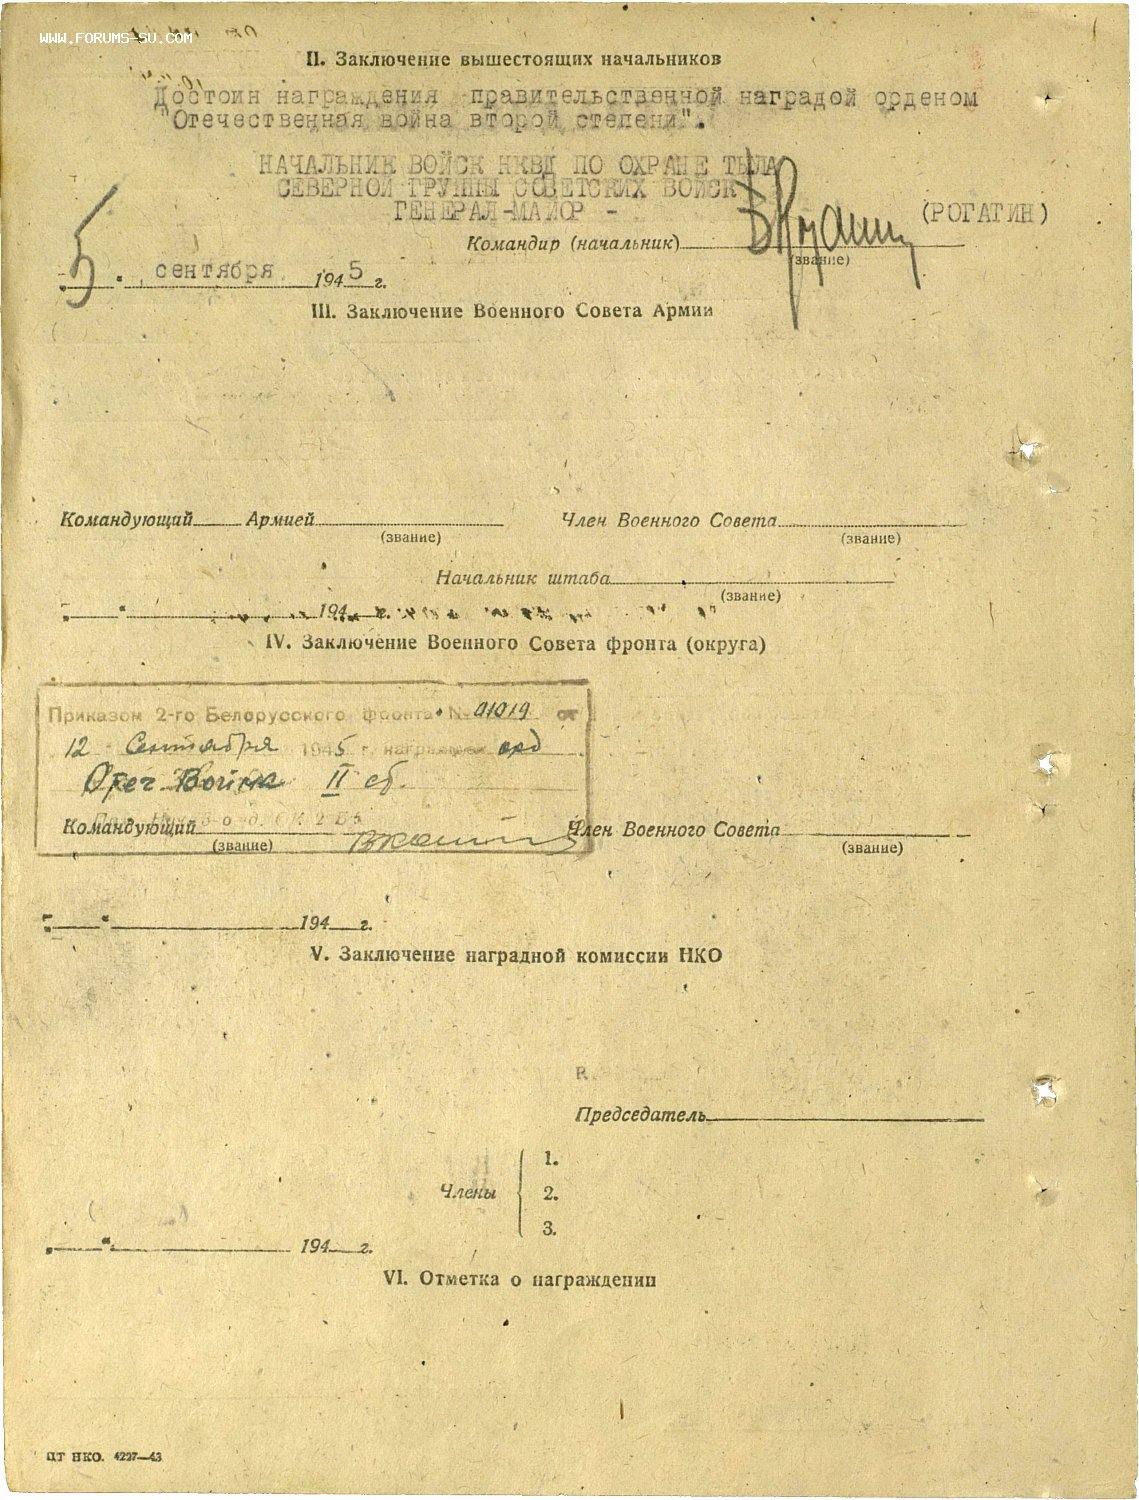 WWW.FORUMS-SU.COM
II. Заключение вышестоящих начальников
Достоин награждения правительственной наградой орденом
"Отечественная война второй степени".
НАЧАЛЬНИК ВОЙСК НКВД ПО ОХРАНЕ ТЫЛА
СЕВЕРНОЙ ГРУППЫ СОВЕТСКИХ ВОЙСК
ГЕНЕРАЛ-МАЙОР - (РОГАТИН)
Командир (начальник)
(звание)
"5" сентября 1945 г.
III. Заключение Военного Совета Армии
Командующий Армией Член Военного Совета
(звание) (звание)
Начальник штаба
(звание)
" " 194 г.
IV. Заключение Военного Совета фронта (округа)
Приказом 2-го Белорусского фронта № 01019 от
12 Сентября 1945 г. награжден орд
Отеч. Война II ст.
Командующий Член Военного Совета
(звание) (звание)
" " 194 г.
V. Заключение наградной комиссии НКО
Председатель
Члены
1.
2.
3.
" " 194 г.
VI. Отметка о награждении
ЦТ НКО. 4227—43